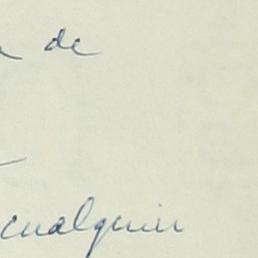 de
cualquier